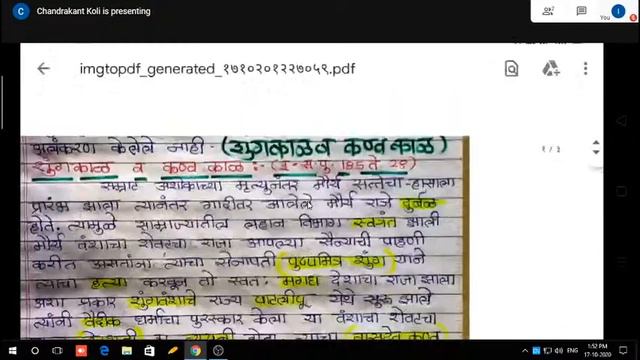 C Chandrakant Koli is presenting
You
imgtopdf_generated_१७१०२०१२२७०५९.pdf
केलेले नाही (शुंगकाळ व कण्व काळ)
शुंगकाळ व कण्व काळ :- (इ.स.पु. 185 ते 28)
सम्राट अशोकाच्या मृत्युनंतर मौर्य सत्तेचा ऱ्हासाला
प्रारंभ झाला त्यानंतर गादीवर आलेले मौर्य राजे दुबळे
होते. त्यामुळे साम्राज्यातील लहान विभाग स्वतंत्र झाली
मौर्य वंशाचा शेवटचा राजा आपल्या सैन्याची पाहणी
करीत असतांना त्याचा सेनापती (पुष्पमित्र शुंग) याने
त्याचा हत्या करवून तो स्वत: मगधा देशाचा राजा झाला
अशा प्रकार शुंगवंशाचे राज्य पाटलीपू येथे सुरू झाले
त्यांनी वैदीक धर्माचा पुरस्कार केला या वंशाचा शेवटचा
1 / 2
ENG
1:52 PM
17-10-2020